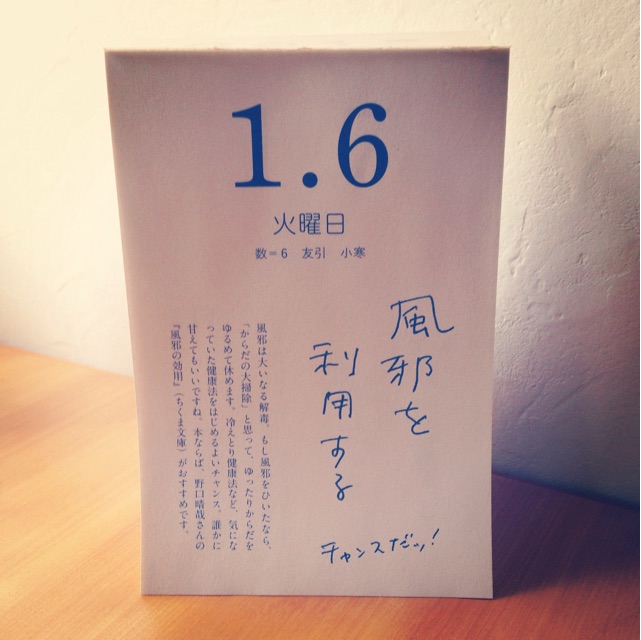 1.6
火曜日
数=6 友引 小寒
風邪を
利用する
チャンスだッ!
風邪は大いなる解毒。もし風邪をひいたなら、
「からだの大掃除」と思って、ゆったりからだを
ゆるめて休めます。冷えとり健康法など、気にな
っていた健康法をはじめるよいチャンス。誰かに
甘えてもいいですね。本ならば、野口晴哉さんの
『風邪の効用』(ちくま文庫)がおすすめです。